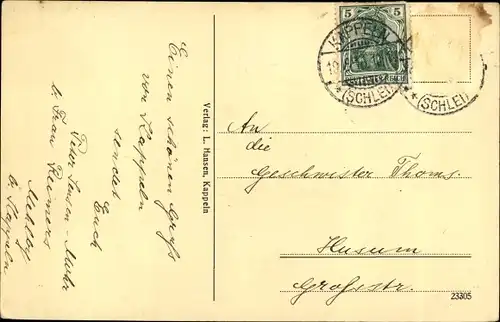 Einen schönen Gruß
vor Kappeln
sendet
Euch
Peter Jensen-
b. Frau Reimers
b. Kappeln
Verlag: L. Hansen, Kappeln
5 5
KAPPELN
(SCHLEI)
(SCHLEI)
An
die
Geschwister Thoms.
Husum
Großstr.
23305